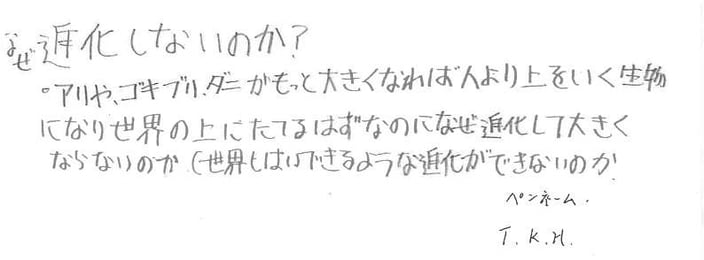 なぜ進化しないのか?
・アリや、ゴキブリ、ダニがもっと大きくなれば人より上をいく生物
になり世界の上にたてるはずなのになぜ進化して大きく
ならないのか(世界しはいできるような進化ができないのか
ペンネーム.
T.K.H.